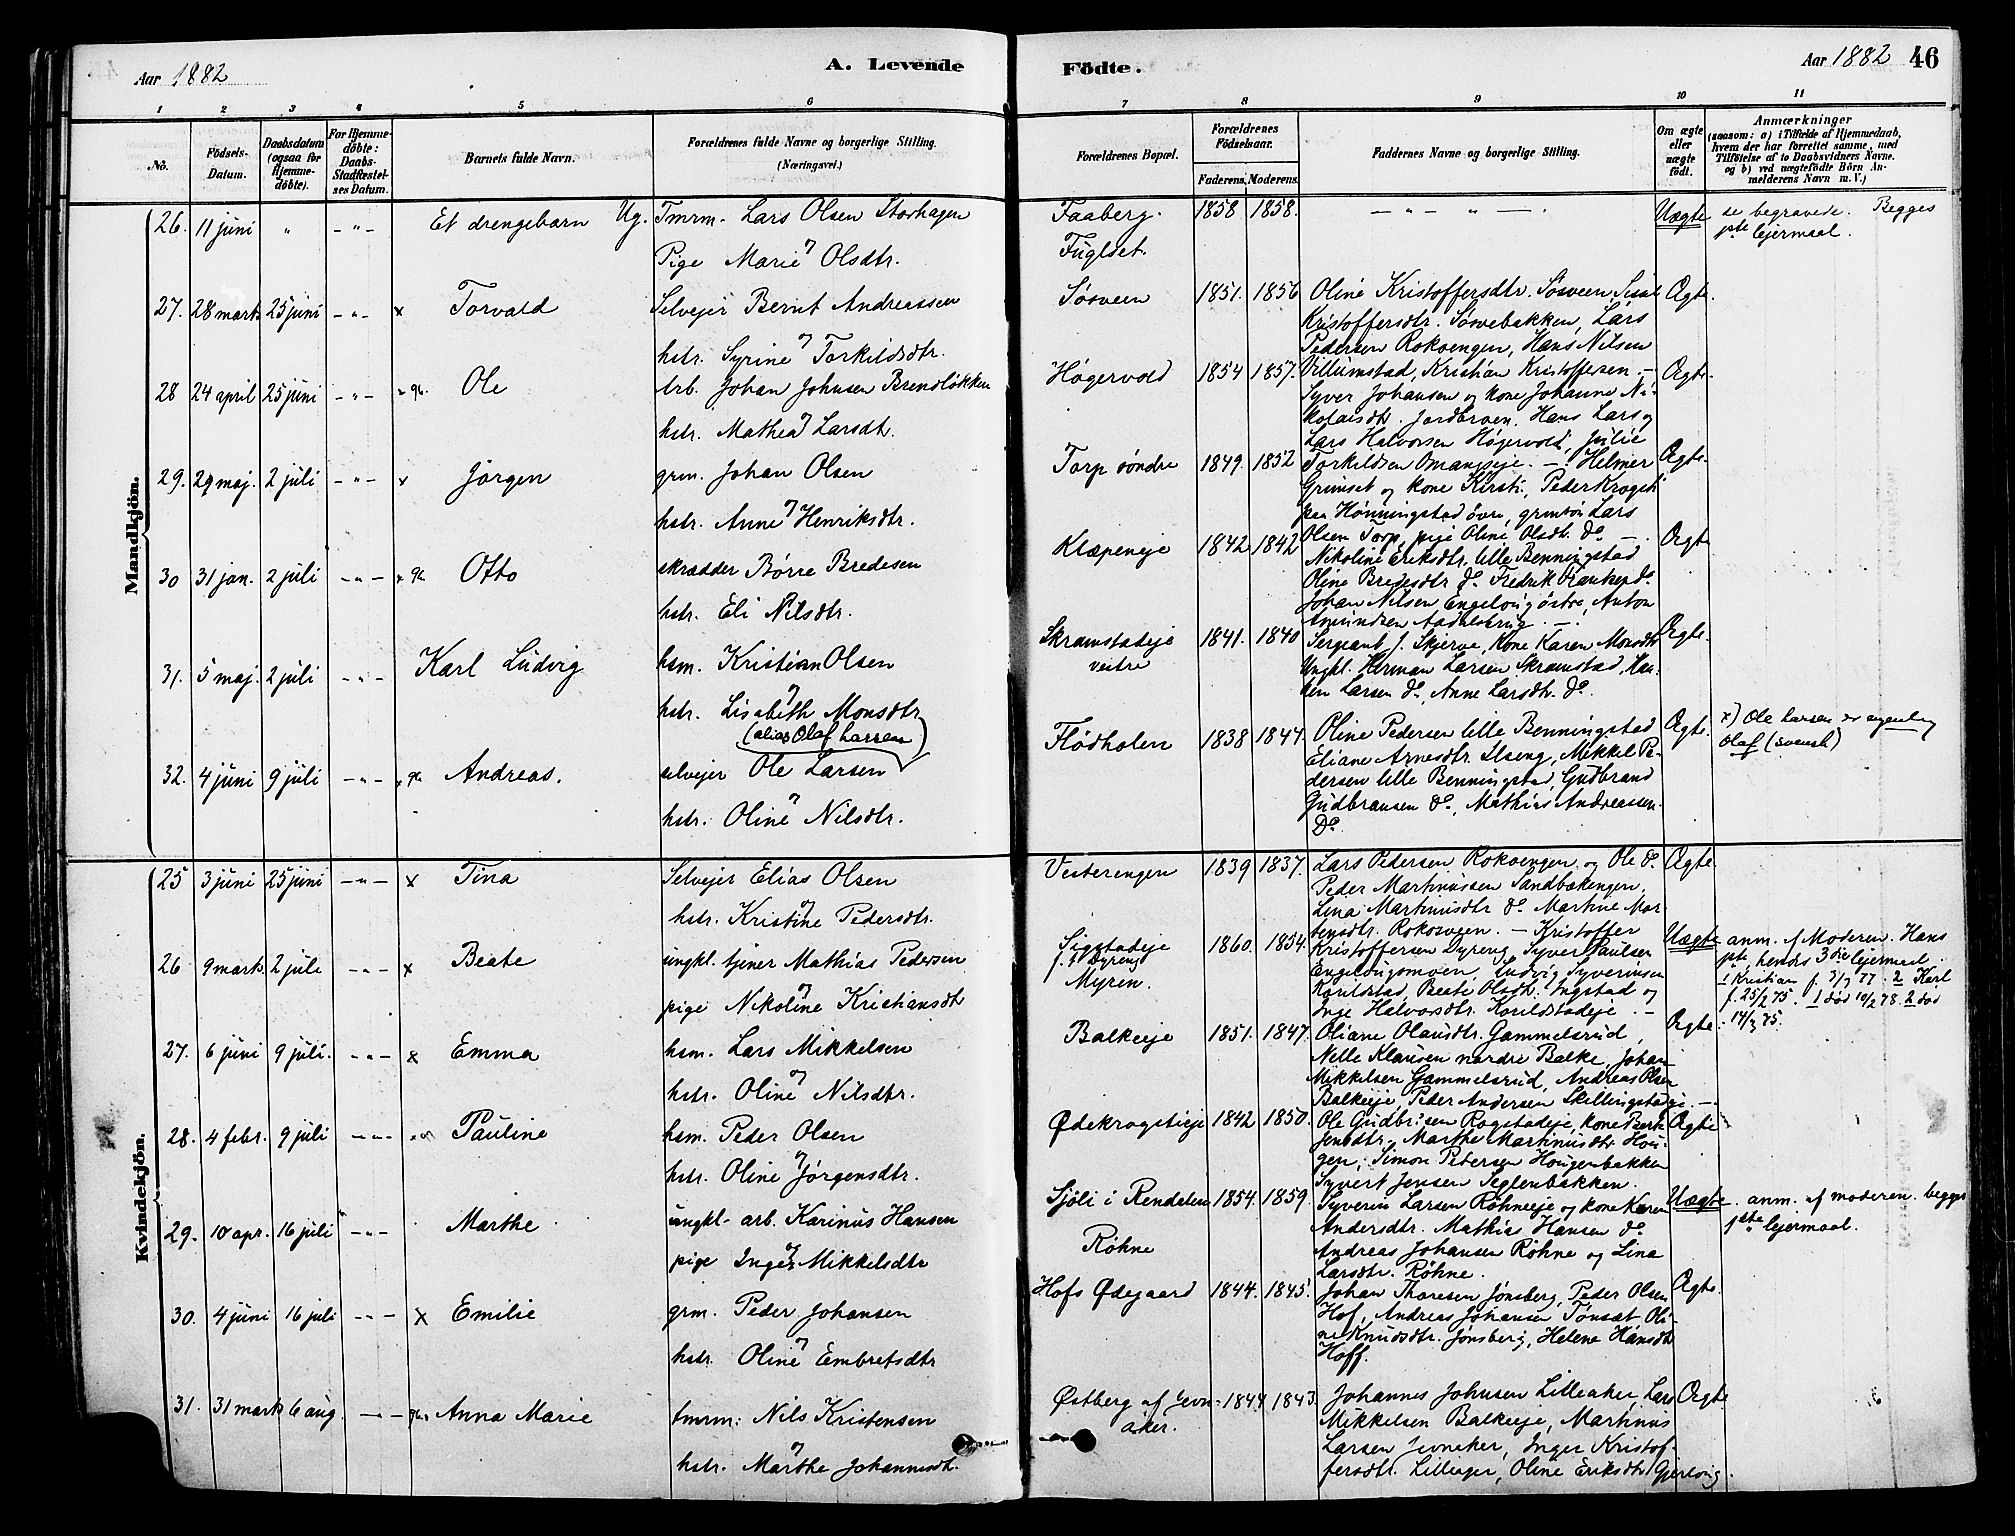 Aar 1882
A. Levende
Födte.
Aar 1882
46
1 2 3 4 5 6 7 8 9 10 11
No.
Födsels-
Datum.
Daabsdatum
(ogsaa for
Hjemme-
döbte).
For Hjemme-
döbte:
Daabs-
Stadfæstel-
ses Datum.
Barnets fulde Navn.
Forældrenes fulde Navne og borgerlige Stilling.
(Næringsvei.)
Forældrenes Bopæl.
Forældrenes
Födselsaar.
Faderens. Moderens.
Faddernes Navne og borgerlige Stilling.
Om ægte
eller
uægte
födt.
Anmærkninger
(saasom: a) i Tilfælde af Hjemmedaab,
hvem der har forrettet samme, med
Tilföielse af to Daabsvidners Navne.
og b) ved uægtefödte Börn An-
melderens Navn m. V.)
Mandkjön.
26. 11 juni " - " - Et drengebarn Ug. Tmrm. Lars Olsen Storhagen
og
Pige Marie Olsdtr.
Faaberg.
Fuglset.
1858 1858. Uægte
se begravede. Begges
1ste lejermaal.
27. 28 marts 25 juni - " - x Torvald Selvejer Bernt Andreassen
og
hstr. Syrine Torkildsdtr.
Søsveen 1851. 1856
Oline Kristoffersdtr. Søsveen,
Kristoffersdtr. Søsvebakken, Lars
Pedersen Rokoengen, Hans Nilsen
Ægte.
28 24 april 25 juni - " - Ole Arb. Johan Johnsen Brendløkken
og
hstr. Mathea Larsdt.
Høgervold 1854 1857.
Villumstad, Kristian Kristoffersen. -
Syver Johansen og kone Johanne Ni-
kolaisdtr. Jordbroen, Hans Lars og
Lars Halvorsen Høgervold, Julie
Ægte.
29. 29 maj. 2 juli - " - x Jørgen grm. Johan Olsen
og
hstr. Anne Henriksdtr.
Torp söndre 1849. 1852
Torkildsen Omangseje. - Helmer
Grimset og kone Kirsti, Peder Krogsti
paa Hønningstad övre, Lars
Olsen Torp, pige Oline Olsdt. do -
Ægte.
30 31 jan. 2 juli - " - Otto skrædder Børre Bredesen
hstr. Eli Nilsdtr.
Klæpeneje 1842 1842
Nikoline Eriksdtr. lille Benningstad
Oline Bredesdtr do. Fredrik do.
Johan Nilsen Engeloug östre, Anton
Amundsen
Ægte
31. 5 maj. 2 juli - " - Karl Ludvig hsm. Kristian Olsen
og
hstr. Lisabeth Monsdtr
Skramstadeje
vestre
1841. 1840
Sergeant J. Skjerve, Kone Karen Monsdtr
Ungkl. Herman Larsen Skramstad, Haa-
ken Larsen do., Anne Larsdtr. do.
Ægte.
(alias Olaf Larsen)
32. 4 juni 9 juli - " - Andreas. selvejer Ole Larsen
og
hstr. Oline Nilsdtr.
Flödholen 1838 1844.
Oline Pedersen lille Benningstad
Eliane Arnesdtr Ilseng, Mikkel Pe-
dersen lille Benningstad, Gudbrand
Gudbransen do., Mathias Andreassen.
Do.
Ægte.
x) Ole Larsen er egentlig
Olaf (svensk)
Kvindekjön.
25 3 juni 25 juni - " - x Tina Selvejer Elias Olsen
og
hstr. Kristine Pedersdtr.
Vesterengen 1839 1837.
Lars Pedersen Rokoengen og Ole do.
Peder Martinussen Sandbakengen,
Lina Martinusdtr do. Martine Mor-
tensdtr. Rokoengen. - Kristoffer
Ægte.
26 9 marts. 2 juli - " - x Beate ungkl. tjener Mathias Pedersen
og
pige Nikoline Kristiansdt
Sigstadeje
f. t. Dyreng
Myren.
1860. 1854.
Kristoffersen Dyreng, Syver Paulsen
Engelougsmoen, Ludvig Syverinsen
Karilstad, Beate Olsdt. Ingstad og
Inge Halvorsdtr. Karildstadeje. -
Uægte
anm. af Moderen. Hans
1ste hendes 3die lejermaal
1 Kristian f. 3/9 77. 2 Karl
f. 25/2 75. 1 död 10/2 78. 2 död
14/3 75.
27. 6 juni 9 juli. - " - x Emma hsm. Lars Mikkelsen
og
hstr. Oline Nilsdtr.
Balkeeje 1851. 1847.
Oliane Olausdtr. Gammelsrud,
Nelle Klausen nordre Balke, Johan
Mikkelsen Gammelsrud, Andreas Olsen
Balkeeje Peder Andersen Skellingstadeje. -
Ægte.
28. 4 febr. 9 juli - " - Pauline hsm. Peder Olsen
og
hstr. Oline Jørgensdtr.
Ødekrogstieje 1842 1850.
Ole Gudbr:sen Rogstadeje, kone Berte
Jensdtr. Marthe Martinusdtr Hou-
gen, Simon Petersen Hougenbakken
Syvert Jensen Seglenbakken.
Ægte
29. 10 apr. 16 juli - " - Marthe ungkl. arb. Karinus Hansen
og
pige Inger Mikkelsdtr
Sjöli i Rendalen
Røhne
1854. 1859.
Syverin Larsen Røhneeje og kone Karen
Andersdtr. Mathias Hansen do.
Andreas Johansen Røhne og Lina
Larsdtr. Røhne.
Uægte
anm. af moderen. begges
1ste lejermaal.
30. 4 juni 16 juli - " - x Emilie grm. Peder Johansen
og
hstr. Oline Embretsdtr
Hofs Ødegaard 1844. 1845.
Johan Thoresen Jønsberg, Peder Olsen
Hof, Andreas Johansen Tønset, Oli-
ne Knudsdtr. Jønsberg, Helene Hansdt
Hoff.
Ægte.
31. 31 marts 6 aug. - - Anna Marie tmrm: Nils Kristensen
og
hstr. Marthe Johannesdt.
Østberg af Jevn-
aker.
1844 1843.
Johannes Johnsen Lilleaker, Lars
Mikkelsen Balkeeje, Martinus
Larsen Jevneker, Inger Kristof-
fersdtr. Lilleager, Oline Eriksdtr Gjerloug.
Ægte